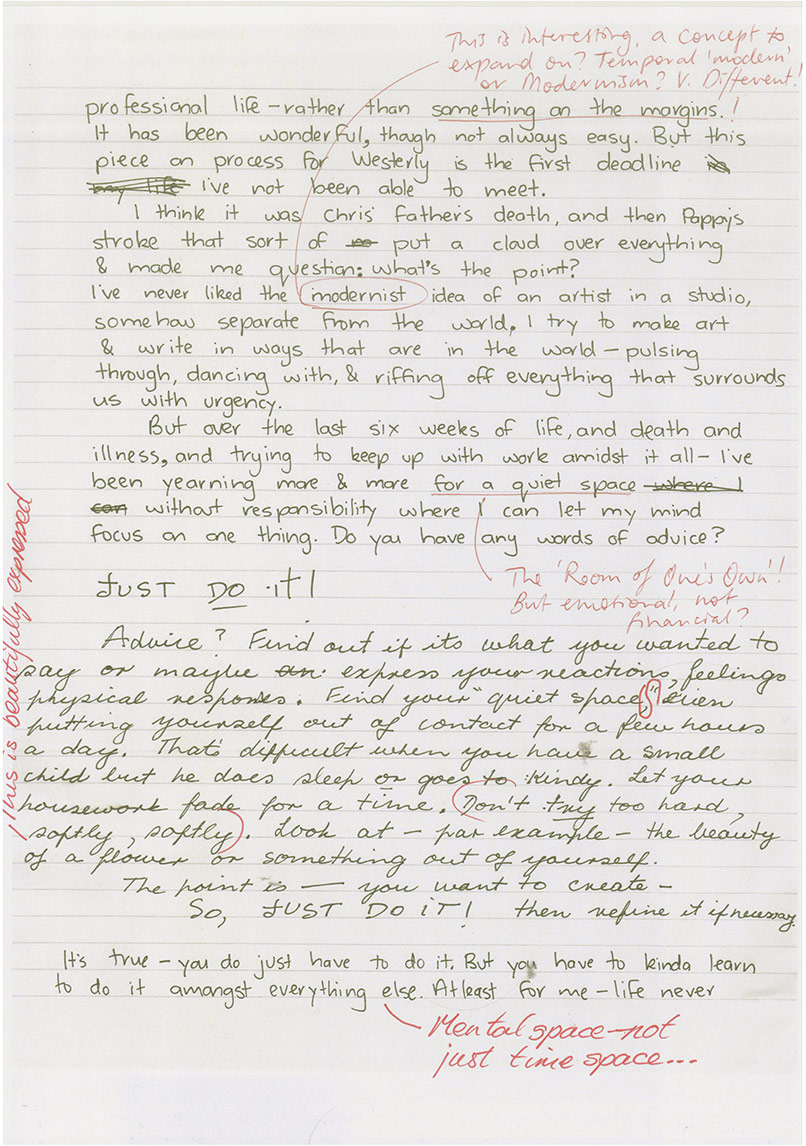 This is interesting, a concept to
expand on? Temporal 'modern'
or Modernism? V. Different!
professional life – rather than something on the margins.!
It has been wonderful, though not always easy. But this
piece on process for Westerly is the first deadline in
any life I've not been able to meet.
I think it was Chris' father's death, and then Poppy's
stroke that sort of put a cloud over everything
& made me question: what's the point?
I've never liked the modernist idea of an artist in a studio,
somehow separate from the world. I try to make art
& write in ways that are in the world – pulsing
through, dancing with, & riffing off everything that surrounds
us with urgency.
But over the last six weeks of life, and death and
illness, and trying to keep up with work amidst it all – I've
been yearning more & more for a quiet space where I
can without responsibility where I can let my mind
focus on one thing. Do you have any words of advice?
The 'Room of One's Own'!
But emotional, not
financial?
JUST DO it!
Advice? Find out if its what you wanted to
say or maybe an express your reactions, feelings
physical respones. Find your "quiet space," even
putting yourself out of contact for a few hours
a day. That's difficult when you have a small
child but he does sleep or goes to kindy. Let your
housework fade for a time. Don't try too hard,
softly, softly. Look at – par example – the beauty
of a flower or something out of yourself.
The point is — you want to create –
So, JUST DO IT! then refine it if necessary.
This is beautifully expressed
It's true – you do just have to do it. But you have to kinda learn
to do it amongst everything else. Atleast for me – life never
Mental space – not
just time space...